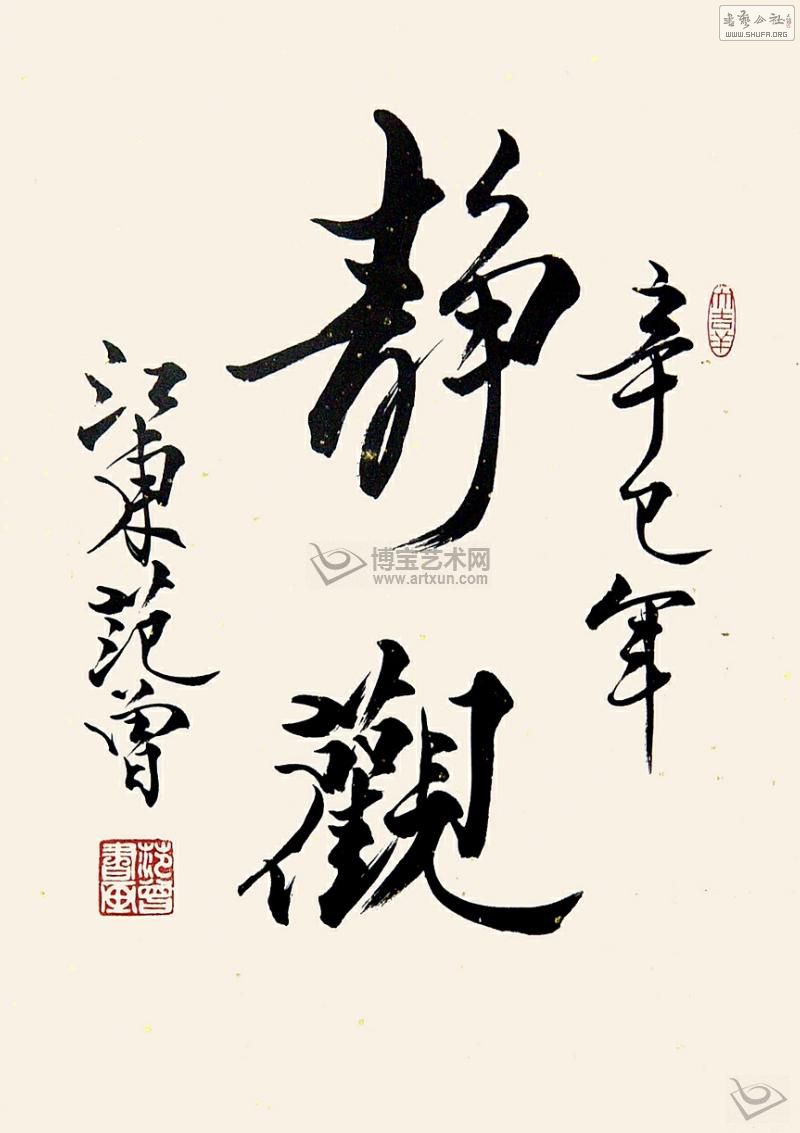 辛巳年
靜觀
江東范曾
大吉羊
范曾書画
博宝艺术网
www.artxun.com
書藝公社
WWW.SHUFA.ORG